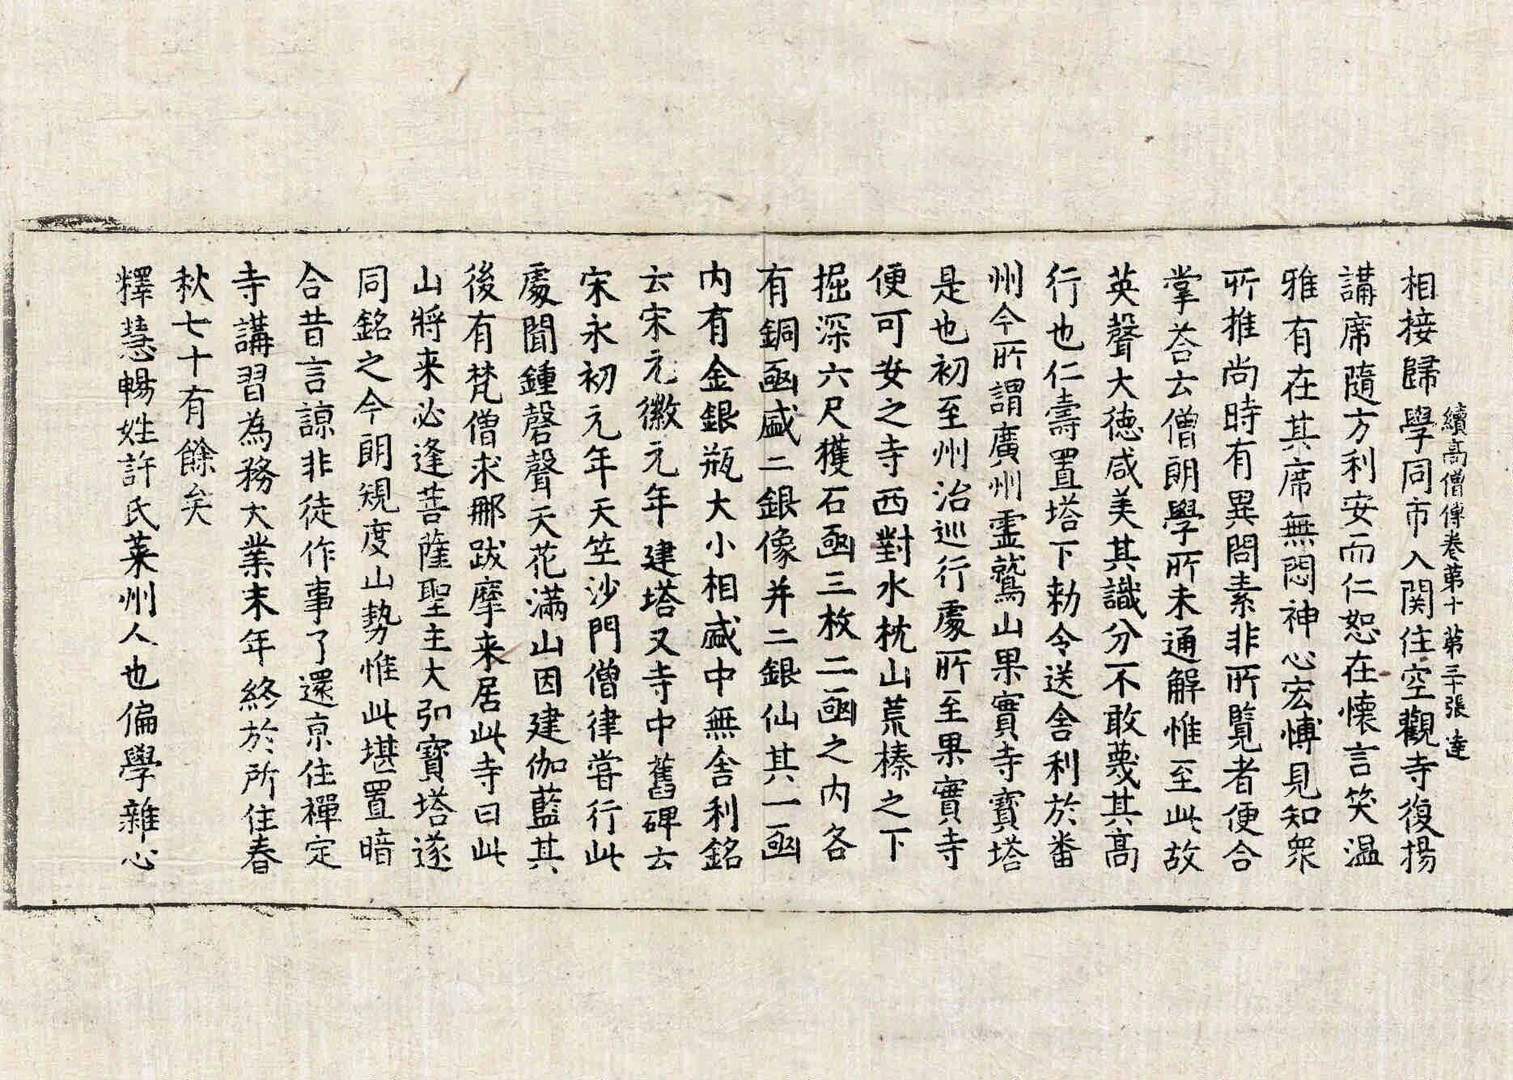 續高僧傳卷第十 第三十張 達
相接歸學同市入関住空觀寺復揚
講席隨方利安而仁恕在懷言笑温
雅有在其席無悶神心宏愽見知眾
所推尚時有異問素非所覽者便合
掌荅云僧朗學所未通解惟至此故
英聲大德咸美其識分不敢蔑其高
行也仁壽置塔下勑令送舍利於番
州今所謂廣州靈鷲山果實寺寶塔
是也初至州治巡行處所至果實寺
便可安之寺西對水枕山荒榛之下
掘深六尺獲石凾三枚二凾之內各
有銅凾盛二銀像并二銀仙其一凾
內有金銀瓶大小相盛中無舍利銘
云宋元徽元年建塔又寺中舊碑云
宋永初元年天竺沙門僧律甞行此
處聞鍾磬聲天花滿山因建伽藍其
後有梵僧求那跋摩来居此寺曰此
山將来必逢菩薩聖主大弘寶塔遂
同銘之今朗規度山勢惟此堪置暗
合昔言諒非徒作事了還京住禪定
寺講習為務大業末年終於所住春
秋七十有餘矣
釋慧暢姓許氏萊州人也偏學雜心